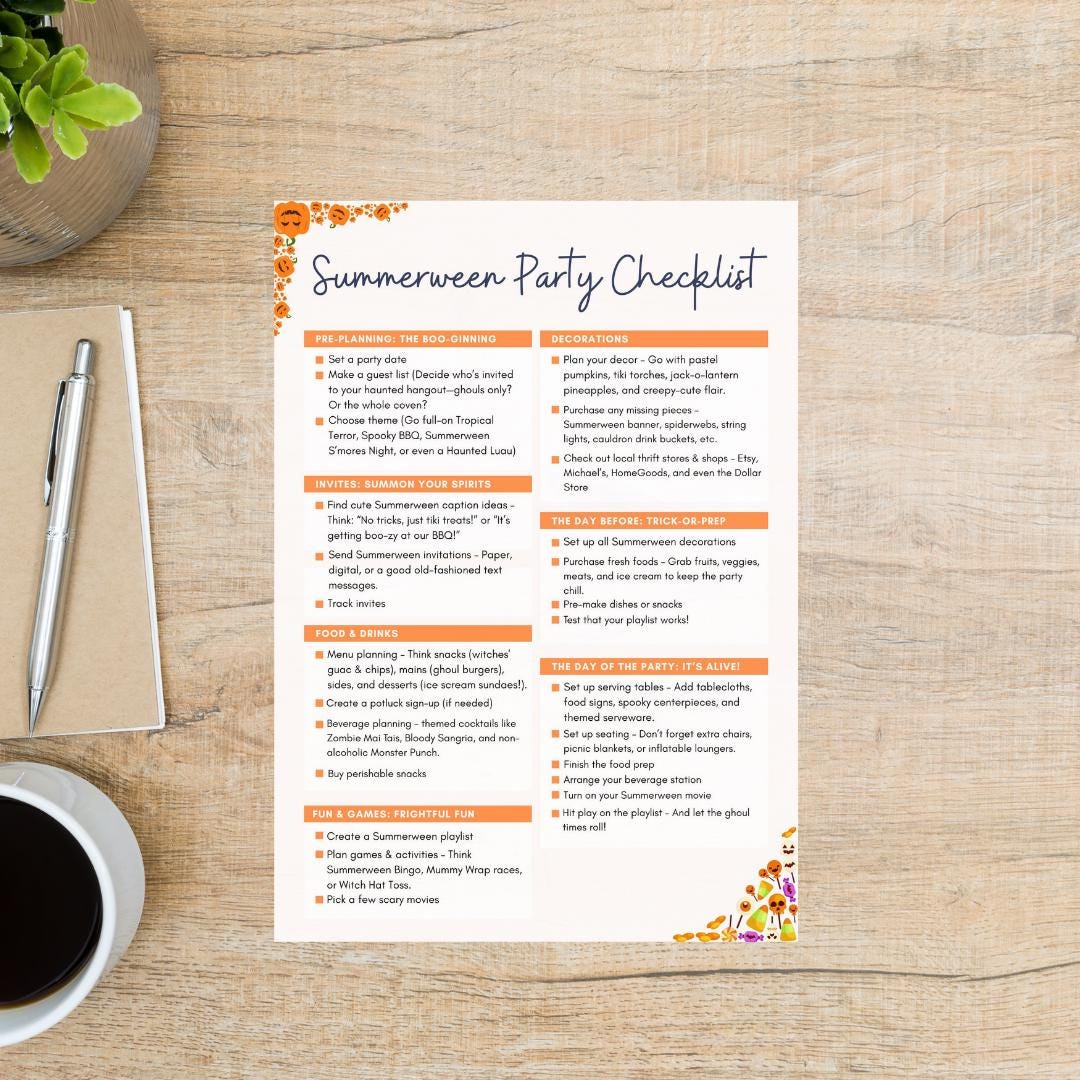 Summerween Party Checklist
PRE-PLANNING: THE BOO-GINNING
Set a party date
Make a guest list (Decide who's invited
to your haunted hangout—ghouls only?
Or the whole coven?
Choose theme (Go full-on Tropical
Terror, Spooky BBQ, Summerween
S'mores Night, or even a Haunted Luau)
INVITES: SUMMON YOUR SPIRITS
Find cute Summerween caption ideas –
Think: "No tricks, just tiki treats!" or "It's
getting boo-zy at our BBQ!"
Send Summerween invitations – Paper,
digital, or a good old-fashioned text
messages.
Track invites
FOOD & DRINKS
Menu planning – Think snacks (witches'
guac & chips), mains (ghoul burgers),
sides, and desserts (ice scream sundaes!).
Create a potluck sign-up (if needed)
Beverage planning – themed cocktails like
Zombie Mai Tais, Bloody Sangria, and non-
alcoholic Monster Punch.
Buy perishable snacks
FUN & GAMES: FRIGHTFUL FUN
Create a Summerween playlist
Plan games & activities – Think
Summerween Bingo, Mummy Wrap races,
or Witch Hat Toss.
Pick a few scary movies
DECORATIONS
Plan your decor – Go with pastel
pumpkins, tiki torches, jack-o-lantern
pineapples, and creepy-cute flair.
Purchase any missing pieces –
Summerween banner, spiderwebs, string
lights, cauldron drink buckets, etc.
Check out local thrift stores & shops – Etsy,
Michael's, HomeGoods, and even the Dollar
Store
THE DAY BEFORE: TRICK-OR-PREP
Set up all Summerween decorations
Purchase fresh foods – Grab fruits, veggies,
meats, and ice cream to keep the party
chill.
Pre-make dishes or snacks
Test that your playlist works!
THE DAY OF THE PARTY: IT'S ALIVE!
Set up serving tables – Add tablecloths,
food signs, spooky centerpieces, and
themed serveware.
Set up seating – Don't forget extra chairs,
picnic blankets, or inflatable loungers.
Finish the food prep
Arrange your beverage station
Turn on your Summerween movie
Hit play on the playlist – And let the ghoul
times roll!